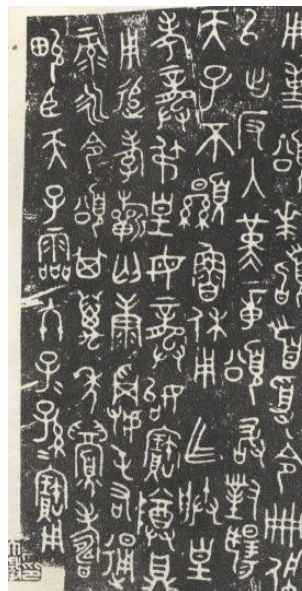 用事頌拜䭫首受令冊佩
以出反入堇章頌敢對揚
天子不顯魯休用乍朕皇
考龏弔皇母龏姒寶尊鼎
用追孝𣄨匄康𩁹屯右通
彔永令頌其萬年眉壽
畯臣天子霝冬子=孫=寶用